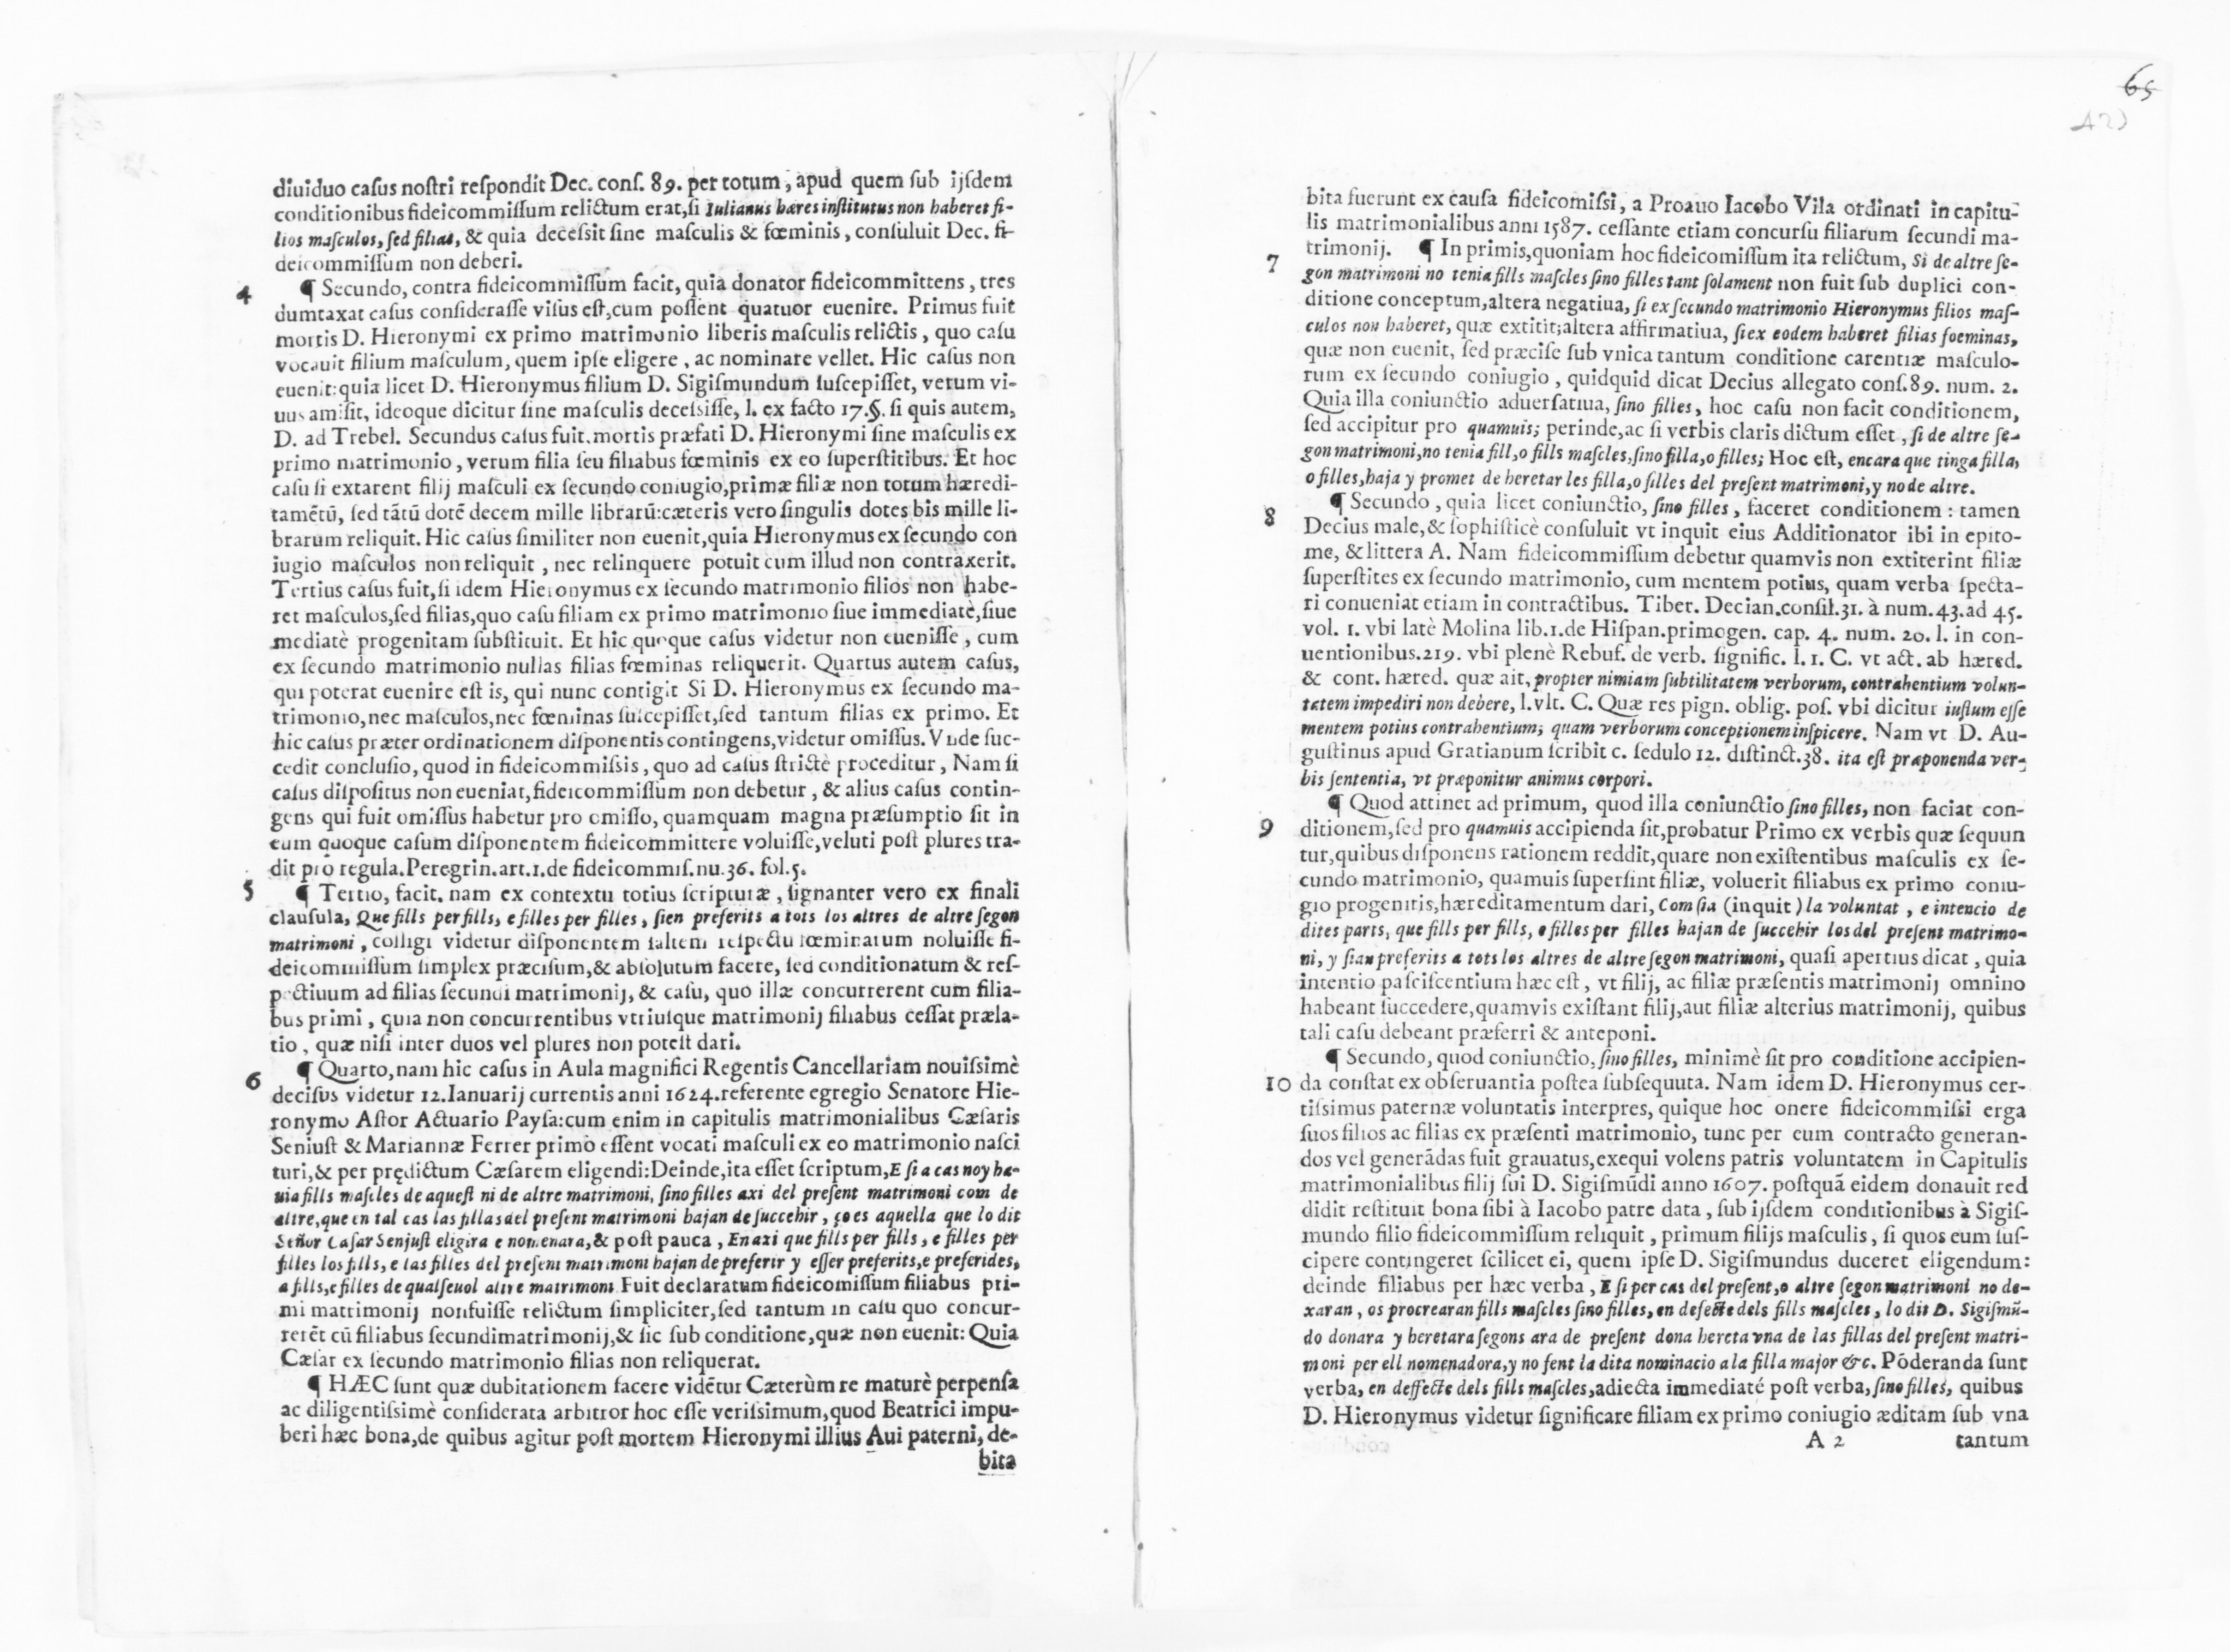 diuiduo casus nostri respondit Dec. cons. 89. per totum, apud quem sub ijsdem
conditionibus fideicommissum relictum erat, si Iulianus hæres institutus non haberet fi-
lios masculos, sed filias, & quia decessit sine masculis & fœminis, consuluit Dec. fi-
deicommissum non deberi.
4 ¶ Secundo, contra fideicommissum facit, quia donator fideicommittens, tres
dumtaxat casus considerasse visus est, cum possent quatuor euenire. Primus fuit
mortis D. Hieronymi ex primo matrimonio liberis masculis relictis, quo casu
vocauit filium masculum, quem ipse eligere, ac nominare vellet. Hic casus non
euenit: quia licet D. Hieronymus filium D. Sigismundum suscepisset, verum vi-
uus amisit, ideoque dicitur sine masculis decessisse, l. ex facto 17. §. si quis autem,
D. ad Trebel. Secundus casus fuit. mortis præfati D. Hieronymi sine masculis ex
primo matrimonio, verum filia seu filiabus fœminis ex eo superstitibus. Et hoc
casu si extarent filij masculi ex secundo coniugio, primæ filiæ non totum hæredi-
tamẽtũ, sed tãtũ dotẽ decem mille librarũ: cæteris vero singulis dotes bis mille li-
brarum reliquit. Hic casus similiter non euenit, quia Hieronymus ex secundo con
iugio masculos non reliquit, nec relinquere potuit cum illud non contraxerit.
Tertius casus fuit, si idem Hieronymus ex secundo matrimonio filios non habe-
ret masculos, sed filias, quo casu filiam ex primo matrimonio siue immediatè, siue
mediatè progenitam substituit. Et hic quoque casus videtur non euenisse, cum
ex secundo matrimonio nullas filias fœminas reliquerit. Quartus autem casus,
qui poterat euenire est is, qui nunc contigit Si D. Hieronymus ex secundo ma-
trimonio, nec masculos, nec fœminas suscepisset, sed tantum filias ex primo. Et
hic casus præter ordinationem disponentis contingens, videtur omissus. Vnde suc-
cedit conclusio, quod in fideicommissis, quo ad casus strictè proceditur, Nam si
casus dispositus non eueniat, fideicommissum non debetur, & alius casus contin-
gens qui fuit omissus habetur pro omisso, quamquam magna præsumptio sit in
eum quoque casum disponentem fideicommittere voluisse, veluti post plures tra-
dit pro regula. Peregrin. art. 1. de fideicommis. nu. 36. fol. 5.
5 ¶ Tertio, facit. nam ex contextu totius scripturæ, signanter vero ex finali
clausula, Que fills per fills, e filles per filles, sien preferits a tots los altres de altre segon
matrimoni, colligi videtur disponentem saltem respectu fœminarum noluisse fi-
deicommissum simplex præcisum, & absolutum facere, sed conditionatum & res-
pectiuum ad filias secundi matrimonij, & casu, quo illæ concurrerent cum filia-
bus primi, quia non concurrentibus vtriusque matrimonij filiabus cessat præla-
tio, quæ nisi inter duos vel plures non potest dari.
6 ¶ Quarto, nam hic casus in Aula magnifici Regentis Cancellariam nouissimè
decisus videtur 12. Ianuarij currentis anni 1624. referente egregio Senatore Hie-
ronymo Astor Actuario Paysa: cum enim in capitulis matrimonialibus Cæsaris
Seniust & Mariannæ Ferrer primò essent vocati masculi ex eo matrimonio nasci
turi, & per prędictum Cæsarem eligendi: Deinde, ita esset scriptum, E si a cas noy ha-
uia fills mascles de aquest ni de altre matrimoni, sino filles axi del present matrimoni com de
altre, que en tal cas las fillas del present matrimoni hajan de succehir, ço es aquella que lo dit
Señor Cæsar Senjust eligira e nomenara, & post pauca, En axi que fills per fills, e filles per
filles los fills, e las filles del present matrimoni hajan de preferir y esser preferits, e preferides,
a fills, e filles de qualseuol altre matrimoni Fuit declaratum fideicomissum filiabus pri-
mi matrimonij nonfuisse relictum simpliciter, sed tantum in casu quo concur-
rerẽt cũ filiabus secundimatrimonij, & sic sub conditione, quæ non euenit: Quia
Cæsar ex secundo matrimonio filias non reliquerat.
¶ HÆC sunt quæ dubitationem facere vidẽtur Cæterùm re maturè perpensa
ac diligentissimè considerata arbitror hoc esse verissimum, quod Beatrici impu-
beri hæc bona, de quibus agitur post mortem Hieronymi illius Aui paterni, de-
bita
65
bita fuerunt ex causa fideicomissi, a Proauo Iacobo Vila ordinati in capitu-
lis matrimonialibus anni 1587. cessante etiam concursu filiarum secundi ma-
7 trimonij. ¶ In primis, quoniam hoc fideicomissum ita relictum, Si de altre se-
gon matrimoni no tenia fills mascles sino filles tant solament non fuit sub duplici con-
ditione conceptum, altera negatiua, si ex secundo matrimonio Hieronymus filios mas-
culos non haberet, quæ extitit; altera affirmatiua, si ex eodem haberet filias foeminas,
quæ non euenit, sed præcise sub vnica tantum conditione carentiæ masculo-
rum ex secundo coniugio, quidquid dicat Decius allegato cons. 89. num. 2.
Quia illa coniunctio aduersatiua, sino filles, hoc casu non facit conditionem,
sed accipitur pro quamuis; perinde, ac si verbis claris dictum esset, si de altre se-
gon matrimoni, no tenia fill, o fills mascles, sino filla, o filles; Hoc est, encara que tinga filla,
o filles, haja y promet de heretar les filla, o filles del present matrimoni, y no de altre.
8 ¶ Secundo, quia licet coniunctio, sino filles, faceret conditionem: tamen
Decius male, & sophisticè consuluit vt inquit eius Additionator ibi in epito-
me, & littera A. Nam fideicommissum debetur quamvis non extiterint filiæ
superstites ex secundo matrimonio, cum mentem potius, quam verba specta-
ri conueniat etiam in contractibus. Tiber. Decian. consil. 31. à num. 43. ad 45.
vol. 1. vbi latè Molina lib. 1. de Hispan. primogen. cap. 4. num. 20. l. in con-
uentionibus. 219. vbi plenè Rebuf. de verb. signific. l. 1. C. vt act. ab hæred.
& cont. hæred. quæ ait, propter nimiam subtilitatem verborum, contrahentium volun-
tatem impediri non debere, l. vlt. C. Quæ res pign. oblig. pos. vbi dicitur iustum esse
mentem potius contrahentium; quam verborum conceptionem inspicere. Nam vt D. Au-
gustinus apud Gratianum scribit c. sedulo 12. distinct. 38. ita est præponenda ver-
bis sententia, vt præponitur animus corpori.
9 ¶ Quod attinet ad primum, quod illa coniunctio sino filles, non faciat con-
ditionem, sed pro quamuis accipienda sit, probatur Primo ex verbis quæ sequun
tur, quibus disponens rationem reddit, quare non existentibus masculis ex se-
cundo matrimonio, quamuis supersint filiæ, voluerit filiabus ex primo coniu-
gio progenitis, hæreditamentum dari, Com sia (inquit) la voluntat, e intencio de
dites parts, que fills per fills, e filles per filles hajan de succehir los del present matrimo-
ni, y sian preferits a tots los altres de altre segon matrimoni, quasi apertius dicat, quia
intentio pasciscentium hæc est, vt filij, ac filiæ præsentis matrimonij omnino
habeant succedere, quamvis existant filij, aut filiæ alterius matrimonij, quibus
tali casu debeant præferri & anteponi.
¶ Secundo, quod coniunctio, sino filles, minimè sit pro conditione accipien-
10 da constat ex obseruantia postea subsequuta. Nam idem D. Hieronymus cer-
tissimus paternæ voluntatis interpres, quique hoc onere fideicommissi erga
suos filios ac filias ex præsenti matrimonio, tunc per eum contracto generan-
dos vel generãdas fuit grauatus, exequi volens patris voluntatem in Capitulis
matrimonialibus filij sui D. Sigismũdi anno 1607. postquã eidem donauit red
didit restituit bona sibi à Iacobo patre data, sub ijsdem conditionibus à Sigis-
mundo filio fideicommissum reliquit, primum filijs masculis, si quos eum sus-
cipere contingeret scilicet ei, quem ipse D. Sigismundus duceret eligendum:
deinde filiabus per hæc verba, E si per cas del present, o altre segon matrimoni no de-
xaran, os procrearan fills mascles sino filles, en defecte dels fills mascles, lo dit D. Sigismũ-
do donara y heretara segons ara de present dona hereta vna de las fillas del present matri-
moni per ell nomenadora, y no fent la dita nominacio a la filla major &c. Põderanda sunt
verba, en deffecte dels fills mascles, adiecta immediaté post verba, sino filles, quibus
D. Hieronymus videtur significare filiam ex primo coniugio æditam sub vna
A 2 tantum